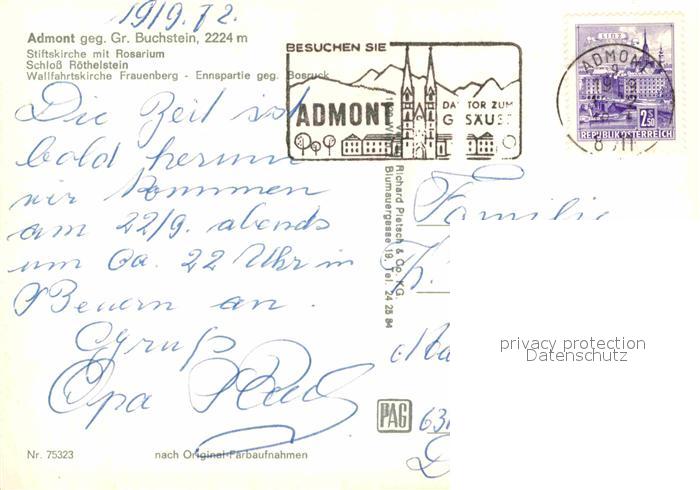 19/9.72.
Admont geg. Gr. Buchstein, 2224 m
Stiftskirche mit Rosarium
Schloß Röthelstein
Wallfahrtskirche Frauenberg - Ennspartie geg. Bosruck
Die Zeit ist
bald herum
wir kommen
am 22/9. abends
um ca. 22 Uhr in
Beuern an.
Gruß
Opa
Nr. 75323
nach Original-Farbaufnahmen
BESUCHEN SIE
ADMONT
DAS TOR ZUM
GESÄUSE
Richard Pietsch & Co. KG.
Blumauergasse 19, Tel. 24 25 84
PAG
LINZ
ADMONT
2.50
REPUBLIK ÖSTERREICH
Familie
privacy protection
Datenschutz